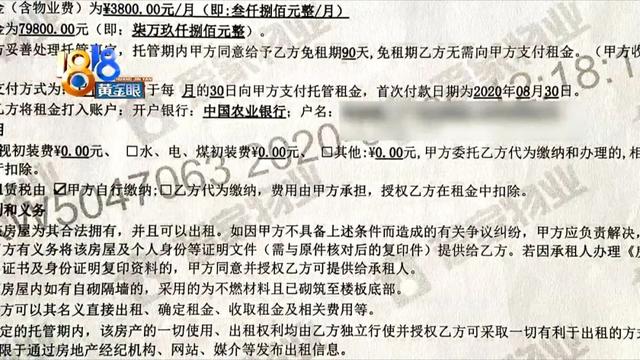 金（含物业费）为¥3800.00元/月（即:叁仟捌佰元整/月）
金为79800.00元（即：柒万玖仟捌佰元整）。
方妥善处理托管事宜，托管期内甲方同意给予乙方免租期90天，免租期乙方无需向甲方支付租金。（甲方收
1818
黄金眼
支付方式为
于每 月的30日向甲方支付托管租金，首次付款日期为2020年08月30日。
乙方将租金打入账户：开户银行：中国农业银行；户名：
用
视初装费¥0.00元、 □水、电、煤初装费¥0.00元、 □其他:¥0.00元,甲方委托乙方代为缴纳和办理的,相
行扣除。
赁税由 ☑甲方自行缴纳;□乙方代为缴纳，费用由甲方承担，授权乙方在租金中扣除。
利和义务
该房屋为其合法拥有，并且可以出租。如因甲方不具备上述条件而造成的有关争议纠纷，甲方应负责解决，
方有义务将该房屋及个人身份等证明文件（需与原件核对后的复印件）提供给乙方。若因承租人办理《
证书及身份证明复印资料的，甲方同意并授权乙方可提供给承租人。
房屋内如有自砌隔墙的，采用的为不燃材料且已砌筑至楼板底部。
方可以其名义直接出租、确定租金、收取租金及相关费用等。
定的托管期内，该房产的一切使用、出租权利均由乙方独立行使并授权乙方可采取一切有利于出租的方式
限于通过房地产经纪机构、网站、媒介等发布出租信息。